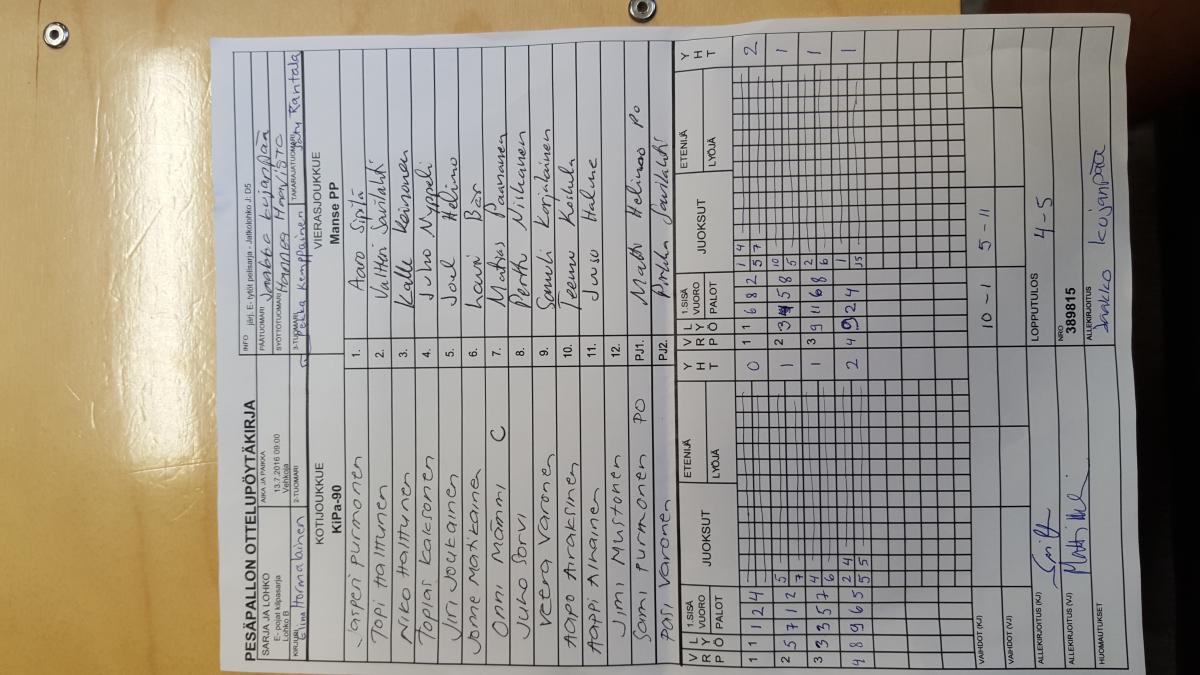 PESÄPALLON OTTELUPÖYTÄKIRJA
INFO järj. E- tytöt pelisarja - Jatkolohko J: D5
SARJA JA LOHKO
E- pojat kilpasarja
Lohko B
AIKA JA PAIKKA
13.7.2016 09:00
Vehkoja
PÄÄTUOMARI Jaakko Kujanpää
SYÖTTÖTUOMARI Hannes Haavisto
KIRJURI Elina Hormalainen
2-TUOMARI
3-TUOMARI Pekka Kemppainen
TAKARAJATUOMARI Rantala
KOTIJOUKKUE
KiPa-90
VIERASJOUKKUE
Manse PP
Jasperi Purmonen 1. Aaro Sipilä
Topi Halttunen 2. Valtteri Savilahti
Niko Halttunen 3. Kalle
Topias Kaksonen 4. Juho Nyppeli
Jiri Joukainen 5. Joel Helimo
Jome Matikainen 6. Lauri Bär
Onni Mämmi C 7. Matias Paananen
Juho Sorvi 8. Perttu Niskanen
Veera Varonen 9. Samuli Karjalainen
Aapo Airaksinen 10. Teemu Koskela
Aappi Alhainen 11. Juuso Halme
Jimi Mustonen 12.
Sami Purmonen PO PJ1. Matti Helimo PO
Pasi Varonen PJ2. Pirkka Savilahti
VRP LYÖ 1.SISÄ VUORO PALOT JUOKSUT ETENIJÄ LYÖJÄ YHT VRP LYÖ 1.SISÄ VUORO PALOT JUOKSUT ETENIJÄ LYÖJÄ YHT
1 1 1 2 4 0 1 1 6 8 2 1 4 2
5 7
2 5 7 1 2 5 1 2 3 5 8 10 1
7 5
3 3 3 5 7 4 1 3 9 11 6 8 2 1
6 6
4 8 9 6 5 2 4 2 4 9 2 4 1 1
5 5
VAIHDOT (KJ)
10 - 1 5 - 11
VAIHDOT (VJ)
ALLEKIRJOITUS (KJ)
LOPPUTULOS 4 - 5
ALLEKIRJOITUS (VJ)
NRO
389815
HUOMAUTUKSET
ALLEKIRJOITUS
Jaakko Kujanpää